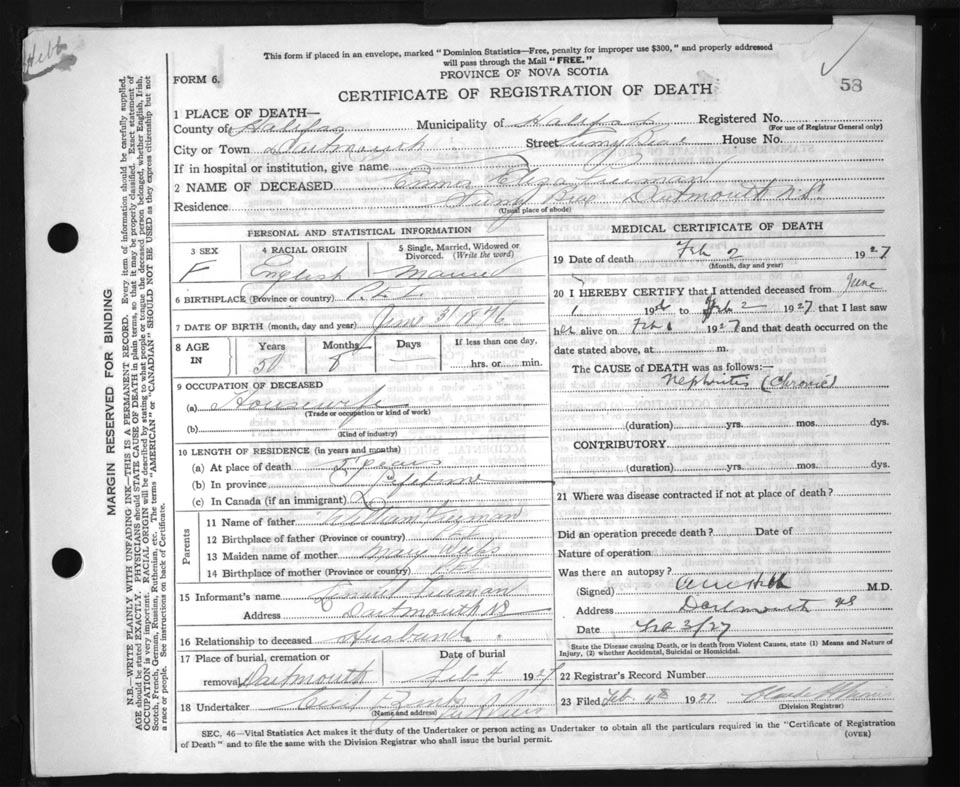 Hebb
This form if placed in an envelope, marked "Dominion Statistics—Free, penalty for improper use $300," and properly addressed
will pass through the Mail "FREE."
FORM 6.
PROVINCE OF NOVA SCOTIA
58
CERTIFICATE OF REGISTRATION OF DEATH
1 PLACE OF DEATH—
County of Halifax Municipality of Halifax Registered No.
(For use of Registrar General only)
City or Town Dartmouth Street House No.
If in hospital or institution, give name
2 NAME OF DECEASED Emma Eliza
Residence Dartmouth N.S.
(Usual place of abode)
PERSONAL AND STATISTICAL INFORMATION
3 SEX F
4 RACIAL ORIGIN English
5 Single, Married, Widowed or Divorced. (Write the word) Married
6 BIRTHPLACE (Province or country) P.E.I.
7 DATE OF BIRTH (month, day and year) June 3 1876
8 AGE IN
Years 50 Months 8 Days — If less than one day, hrs. or min.
9 OCCUPATION OF DECEASED
(a) Housewife
(Trade or occupation or kind of work)
(b)
(Kind of industry)
10 LENGTH OF RESIDENCE (in years and months)
(a) At place of death years
(b) In province Lifetime
(c) In Canada (if an immigrant)
Parents
11 Name of father William
12 Birthplace of father (Province or country) P.E.I.
13 Maiden name of mother Mary
14 Birthplace of mother (Province or country) P.E.I.
15 Informant's name
Address Dartmouth NS
16 Relationship to deceased Husband
17 Place of burial, cremation or removal Dartmouth Date of burial Feb 4 1927
18 Undertaker
(Name and address)
MEDICAL CERTIFICATE OF DEATH
19 Date of death Feb 2 1927
(Month, day and year)
20 I HEREBY CERTIFY that I attended deceased from June
to Feb 2 1927 that I last saw
her alive on Feb 1 1927 and that death occurred on the
date stated above, at m.
The CAUSE of DEATH was as follows:—
Nephritis (Chronic)
(duration) yrs. mos. dys.
CONTRIBUTORY
(duration) yrs. mos. dys.
21 Where was disease contracted if not at place of death?
Did an operation precede death? Date of
Nature of operation
Was there an autopsy?
(Signed) Hebb M.D.
Address Dartmouth NS
Date Feb 3/27
State the Disease causing Death, or in death from Violent Causes, state (1) Means and Nature of Injury, (2) whether Accidental, Suicidal or Homicidal.
22 Registrar's Record Number
23 Filed Feb. 4th 1927
(Division Registrar)
SEC. 46—Vital Statistics Act makes it the duty of the Undertaker or person acting as Undertaker to obtain all the particulars required in the "Certificate of Registration
of Death" and to file the same with the Division Registrar who shall issue the burial permit.
(OVER)
MARGIN RESERVED FOR BINDING
N.B.—WRITE PLAINLY WITH UNFADING INK—THIS IS A PERMANENT RECORD. Every item of information should be carefully supplied.
AGE should be stated EXACTLY. PHYSICIANS should STATE CAUSE OF DEATH in plain terms, so that it may be properly classified. Exact statement of
OCCUPATION is very important. RACIAL ORIGIN will be described by stating to what people or tongue the deceased person belonged, whether English, Irish,
Scotch, French, German, Russian, Ruthenian, etc. The terms "AMERICAN" or "CANADIAN" SHOULD NOT BE USED as they express citizenship but not
a race or people. See instructions on back of Certificate.